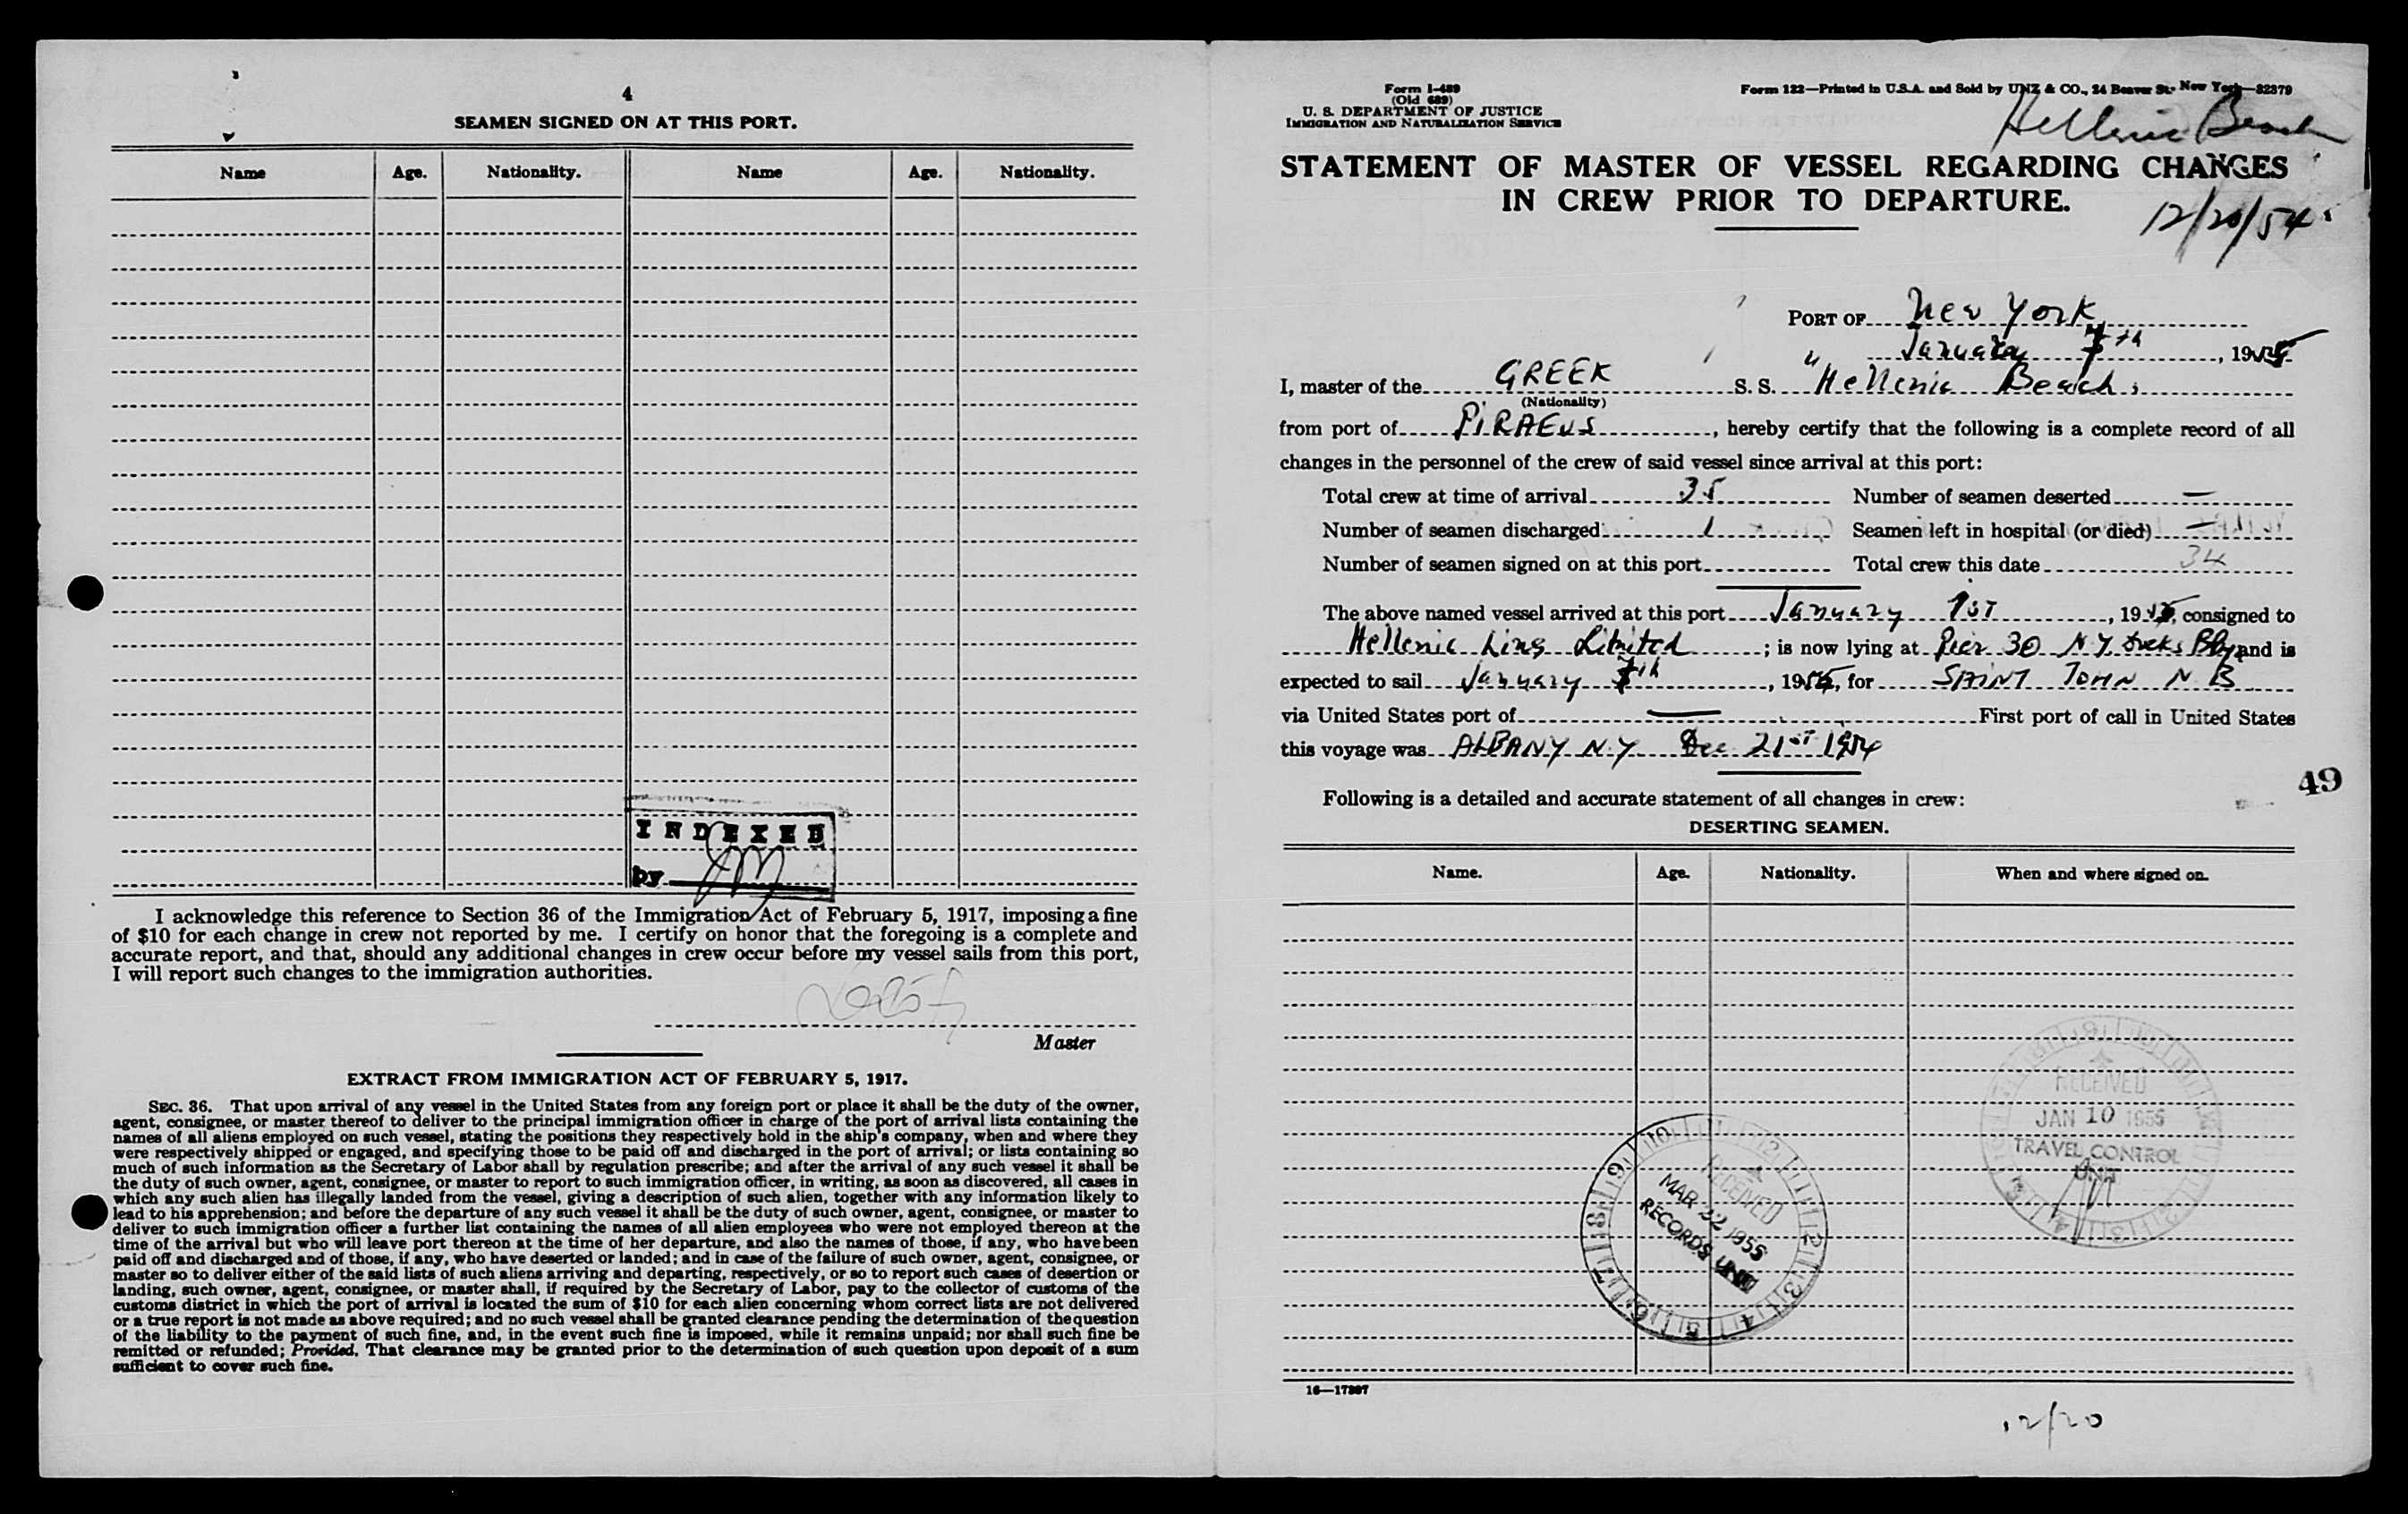 4
SEAMEN SIGNED ON AT THIS PORT.
Name Age. Nationality. Name Age. Nationality.
INDEXED
by
I acknowledge this reference to Section 36 of the Immigration Act of February 5, 1917, imposing a fine
of $10 for each change in crew not reported by me. I certify on honor that the foregoing is a complete and
accurate report, and that, should any additional changes in crew occur before my vessel sails from this port,
I will report such changes to the immigration authorities.
Master
EXTRACT FROM IMMIGRATION ACT OF FEBRUARY 5, 1917.
SEC. 36. That upon arrival of any vessel in the United States from any foreign port or place it shall be the duty of the owner,
agent, consignee, or master thereof to deliver to the principal immigration officer in charge of the port of arrival lists containing the
names of all aliens employed on such vessel, stating the positions they respectively hold in the ship's company, when and where they
were respectively shipped or engaged, and specifying those to be paid off and discharged in the port of arrival; or lists containing so
much of such information as the Secretary of Labor shall by regulation prescribe; and after the arrival of any such vessel it shall be
the duty of such owner, agent, consignee, or master to report to such immigration officer, in writing, as soon as discovered, all cases in
which any such alien has illegally landed from the vessel, giving a description of such alien, together with any information likely to
lead to his apprehension; and before the departure of any such vessel it shall be the duty of such owner, agent, consignee, or master to
deliver to such immigration officer a further list containing the names of all alien employees who were not employed thereon at the
time of the arrival but who will leave port thereon at the time of her departure, and also the names of those, if any, who have been
paid off and discharged and of those, if any, who have deserted or landed; and in case of the failure of such owner, agent, consignee, or
master so to deliver either of the said lists of such aliens arriving and departing, respectively, or so to report such cases of desertion or
landing, such owner, agent, consignee, or master shall, if required by the Secretary of Labor, pay to the collector of customs of the
customs district in which the port of arrival is located the sum of $10 for each alien concerning whom correct lists are not delivered
or a true report is not made as above required; and no such vessel shall be granted clearance pending the determination of the question
of the liability to the payment of such fine, and, in the event such fine is imposed, while it remains unpaid; nor shall such fine be
remitted or refunded; Provided, That clearance may be granted prior to the determination of such question upon deposit of a sum
sufficient to cover such fine.
Form I-489
(Old 689)
U. S. DEPARTMENT OF JUSTICE
IMMIGRATION AND NATURALIZATION SERVICE
Form 122—Printed in U.S.A. and Sold by UNZ & CO., 24 Beaver St. New York—32379
Hellenic Beach
STATEMENT OF MASTER OF VESSEL REGARDING CHANGES
IN CREW PRIOR TO DEPARTURE.
12/20/54
PORT OF New York
January 7th, 1955
I, master of the GREEK S. S. "Hellenic Beach,
(Nationality)
from port of PIRAEUS, hereby certify that the following is a complete record of all
changes in the personnel of the crew of said vessel since arrival at this port:
Total crew at time of arrival 35 Number of seamen deserted —
Number of seamen discharged 1 Seamen left in hospital (or died) —
Number of seamen signed on at this port Total crew this date 34
The above named vessel arrived at this port January 1st, 1955, consigned to
Hellenic Lines Limited; is now lying at Pier 30 N.Y. Docks Bkly and is
expected to sail January 7th, 1955, for SAINT JOHN N B
via United States port of — First port of call in United States
this voyage was ALBANY N.Y Dec 21st 1954
49
Following is a detailed and accurate statement of all changes in crew:
DESERTING SEAMEN.
Name. Age. Nationality. When and where signed on.
RECEIVED
JAN 10 1955
TRAVEL CONTROL
UNIT
RECEIVED
MAR 22 1955
RECORDS UNIT
16—17397
12/20